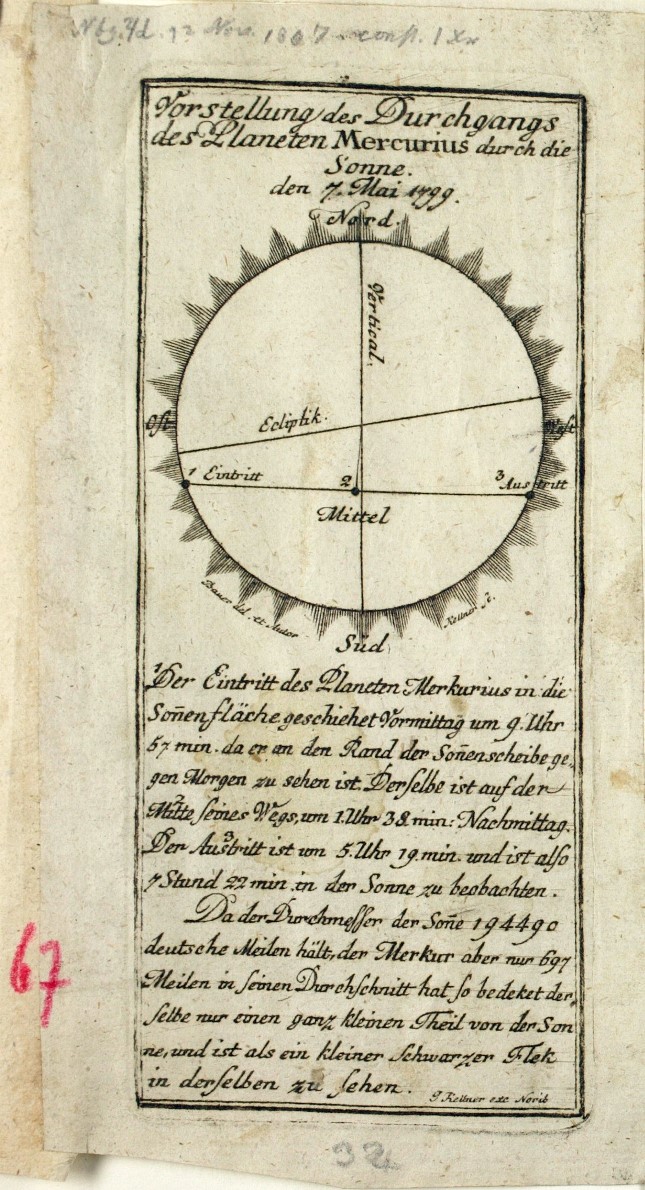 12 Nov. 1807
Vorstellung des Durchgangs
des Planeten Mercurius durch die
Sonne.
den 7. Mai 1799.
Nord.
Vertical.
Ost
Ecliptik.
West
1 Eintritt
2
3 Austritt
Mittel
Bauer del. et Autor
Kellner sc.
Süd
1 Der Eintritt des Planeten Merkurius in die
Soñenfläche geschiehet Vormittag um 9. Uhr
57 min. da er an den Rand der Soñenscheibe ge-
gen Morgen zu sehen ist. Derselbe ist auf der
2 Mitte seines Wegs, um 1. Uhr 38. min: Nachmittag.
Der 3 Austritt ist um 5. Uhr 19. min. und ist also
7 Stund 22 min. in der Sonne zu beobachten.
Da der Durchmesser der Soñe 194490
deutsche Meilen hält, der Merkur aber nur 697
Meilen in seinen Durchschnitt hat so bedeket der-
selbe nur einen ganz kleinen Theil von der Son
ne, und ist als ein kleiner schwarzer Flek
in derselben zu sehen.
J Kellner exc Norib
67
32